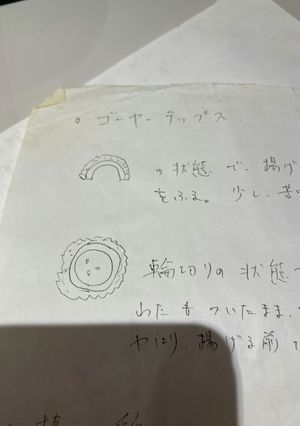 。ゴーヤーチップス.
の状態で、揚げ
をふる。少し、苦
輪切りの状態で
わたもついたまま、
やはり、揚げる前